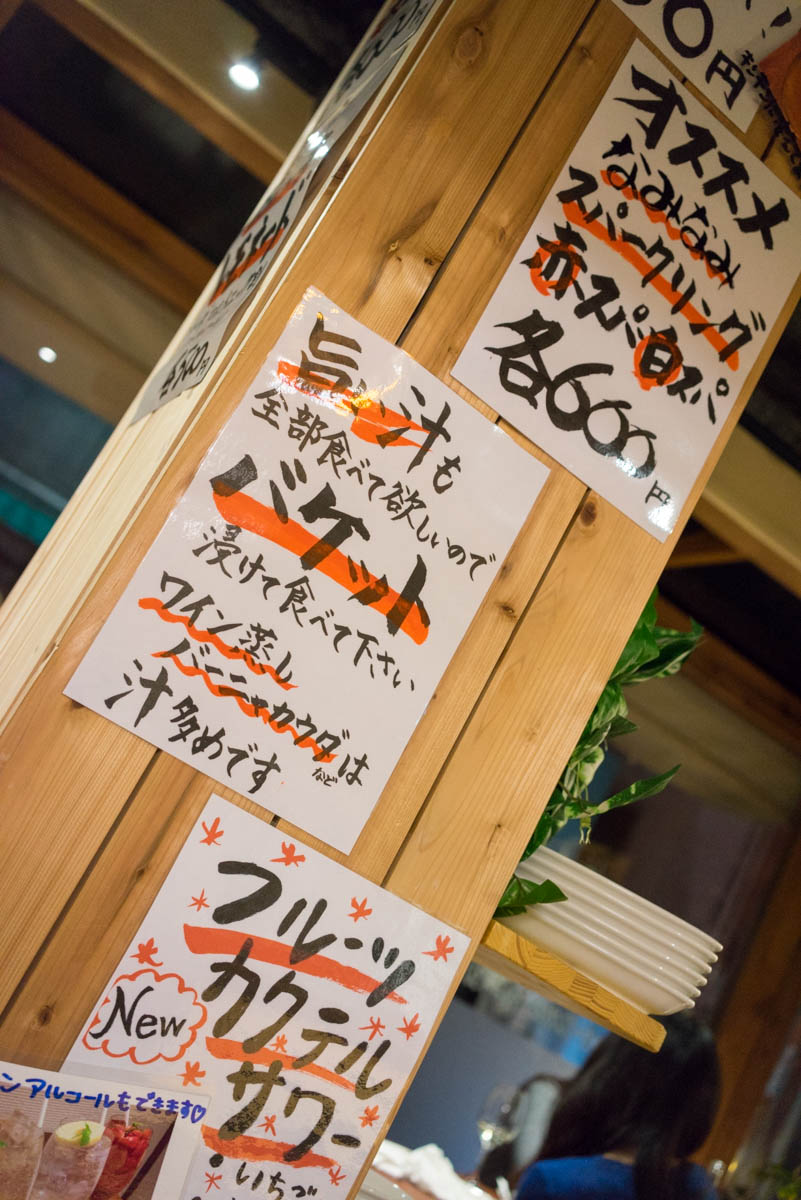 0円
オススメ
なみなみ
スパークリング
赤スパ白スパ
各600円
旨い汁も
全部食べて欲しいので
バケット
浸けて食べて下さい
ワイン蒸し
バーニャカウダなどは
汁多めです
フルーツ
カクテル
サワー
New
・いちご
ン アルコールもできます♡